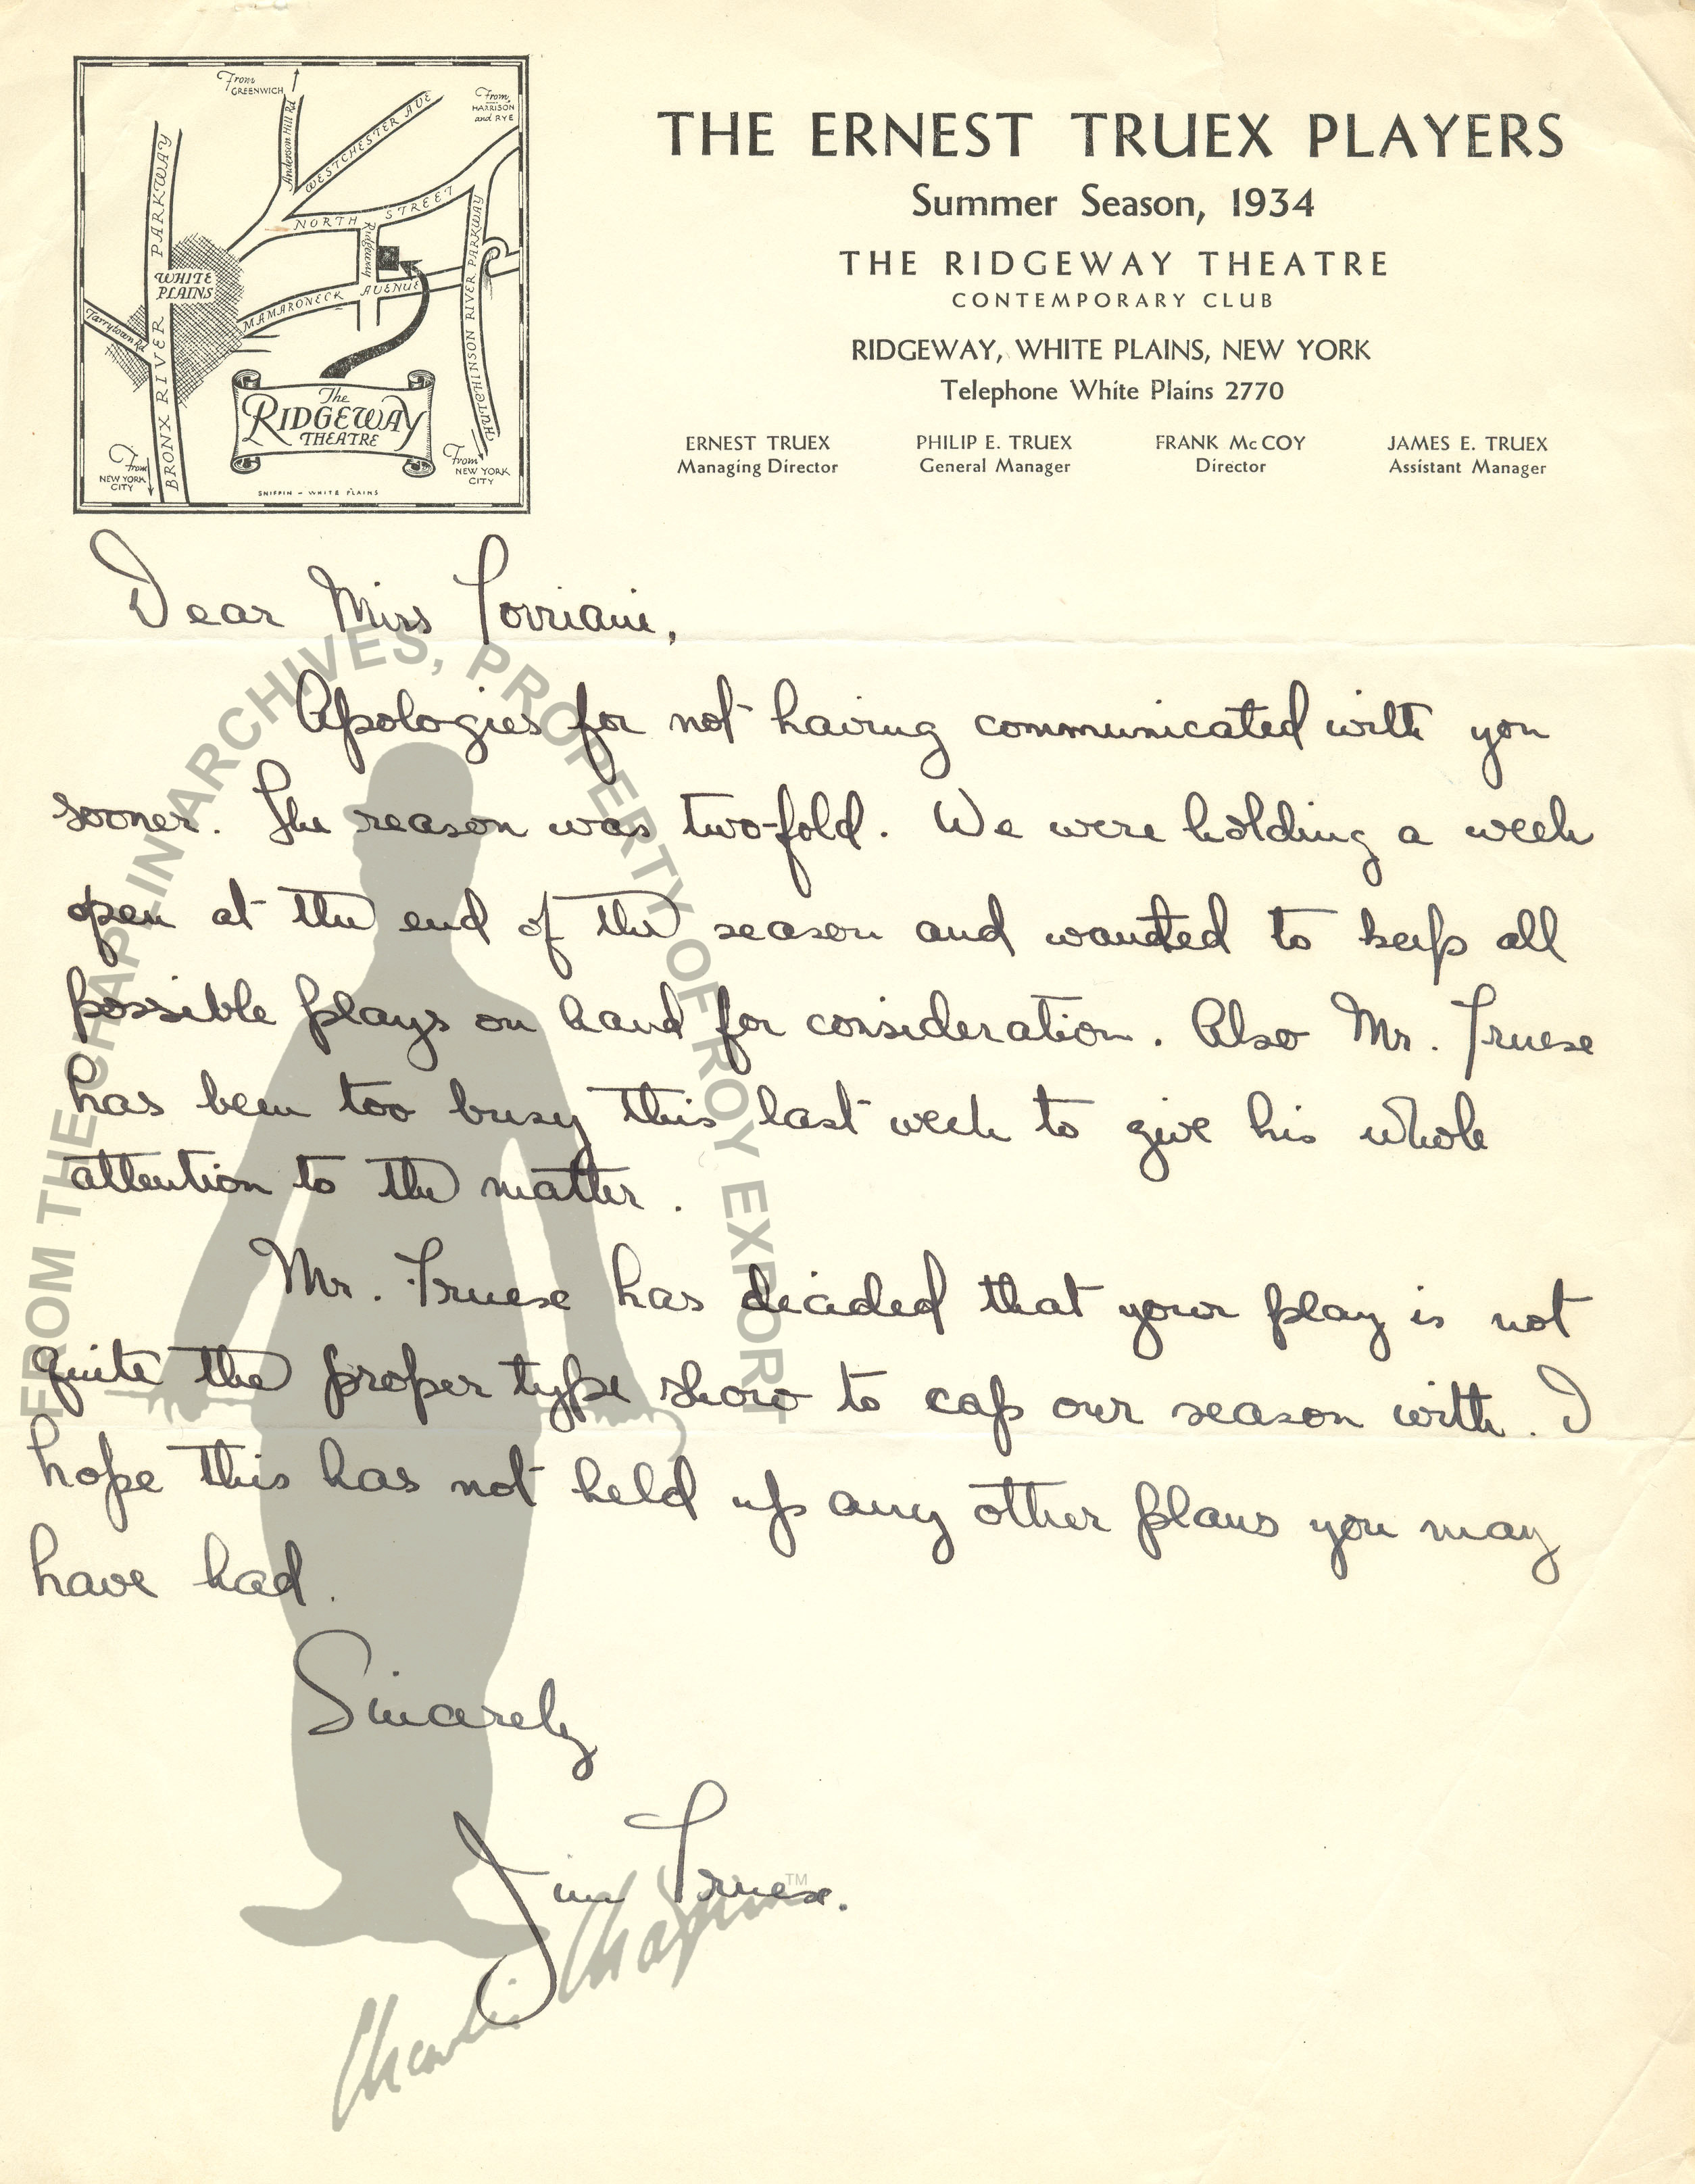 THE ERNEST TRUEX PLAYERS
Summer Season, 1934
THE RIDGEWAY THEATRE
CONTEMPORARY CLUB
RIDGEWAY, WHITE PLAINS, NEW YORK
Telephone White Plains 2770
ERNEST TRUEX PHILIP E. TRUEX FRANK McCOY JAMES E. TRUEX
Managing Director General Manager Director Assistant Manager
From GREENWICH
Anderson Hill Rd
WESTCHESTER AVE
From HARRISON and RYE
BRONX RIVER PARKWAY
NORTH STREET
Ridgeway
WHITE PLAINS
MAMARONECK AVENUE
HUTCHINSON RIVER PARKWAY
Tarrytown Rd
The
RIDGEWAY
THEATRE
From NEW YORK CITY
From NEW YORK CITY
SNIFFIN - WHITE PLAINS
Dear Miss
Apologies for not having communicated with you
sooner. The reason was two-fold. We were holding a week
open at the end of the season and wanted to keep all
possible plays on hand for consideration. Also Mr. Truex
has been too busy this last week to give his whole
attention to the matter.
Mr. Truex has decided that your play is not
quite the proper type show to cap our season with. I
hope this has not held up any other plans you may
have had.
Sincerely
Jim Truex.
FROM THE CHAPLIN ARCHIVES, PROPERTY OF ROY EXPORT
Charlie Chaplin™